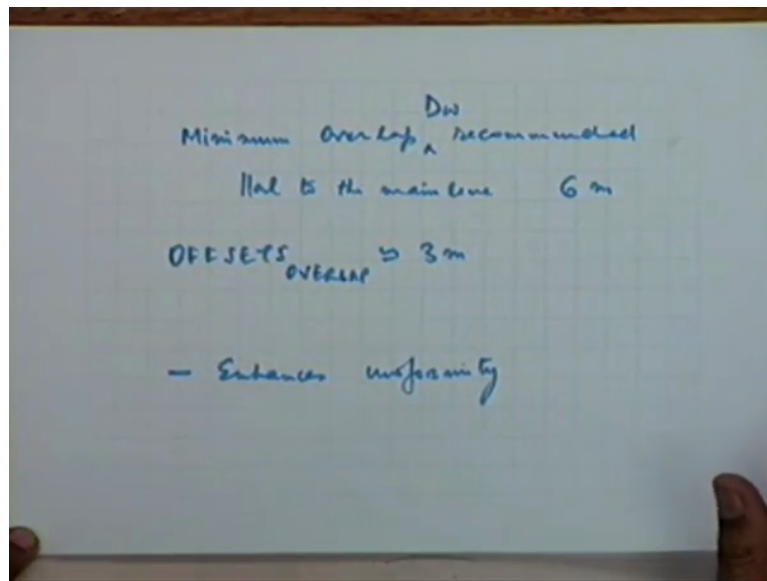 Minimum overlap Dw recommended
llal to the main line 6 m
OFFSETS OVERLAP ≈ 3 m
- Enhances uniformity